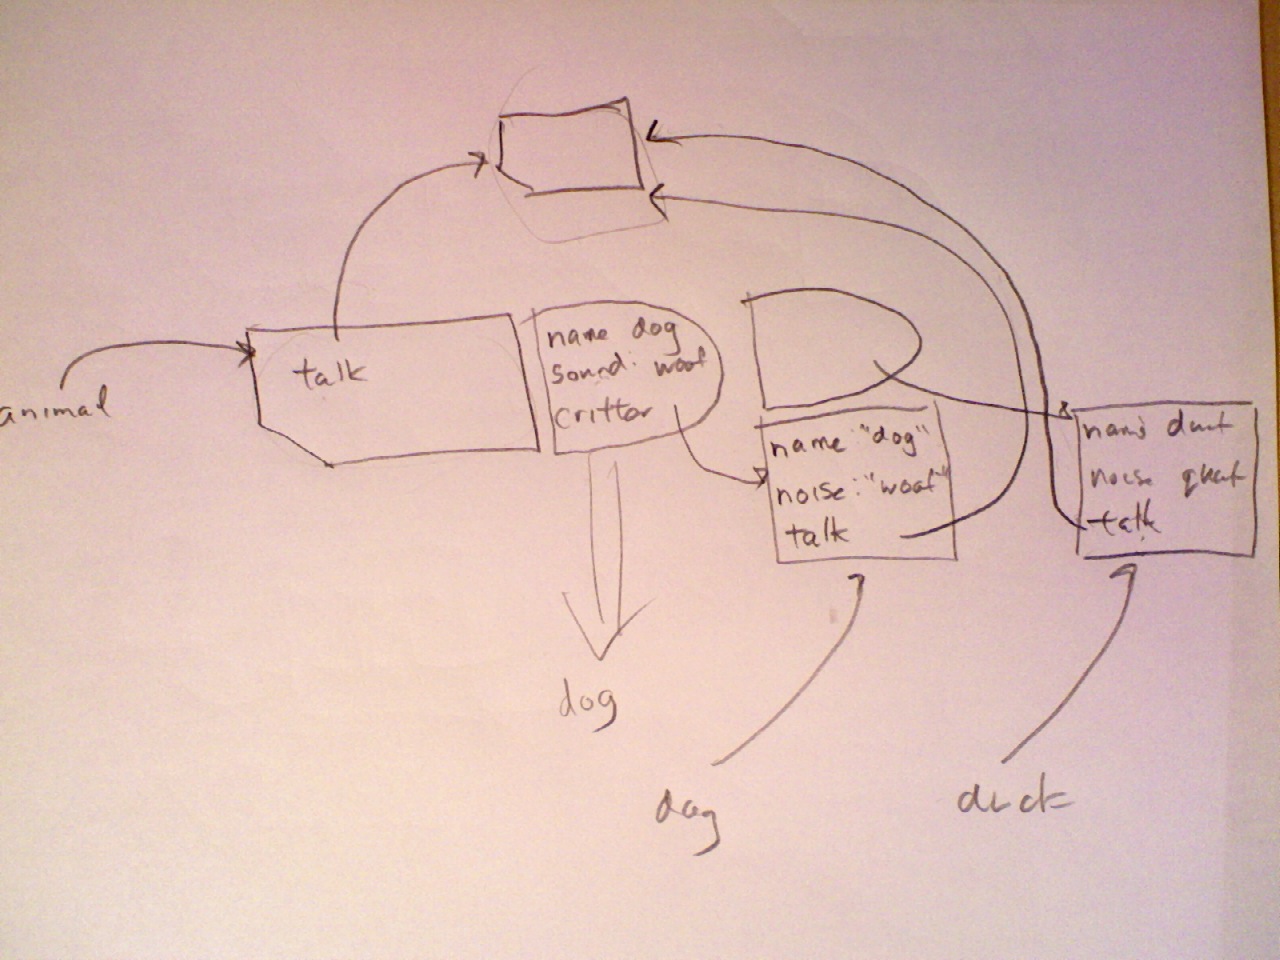 animal
talk
name dog
sound: woof
critter
name: "dog"
noise: "woof"
talk
name duck
noise quack
talk
dog
dog
duck